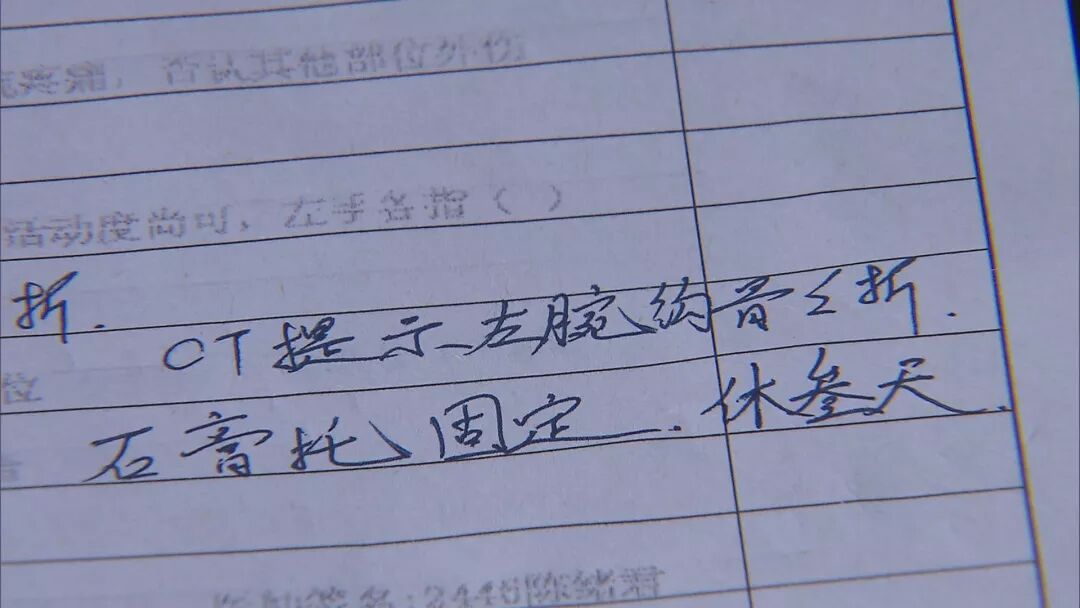 疼痛，否认其他部位外伤
活动度尚可，左手各指（ ）
折.
CT提示左腕钩骨骨折.
位
石膏托固定.休叁天.
医师签名:2446陈绪君